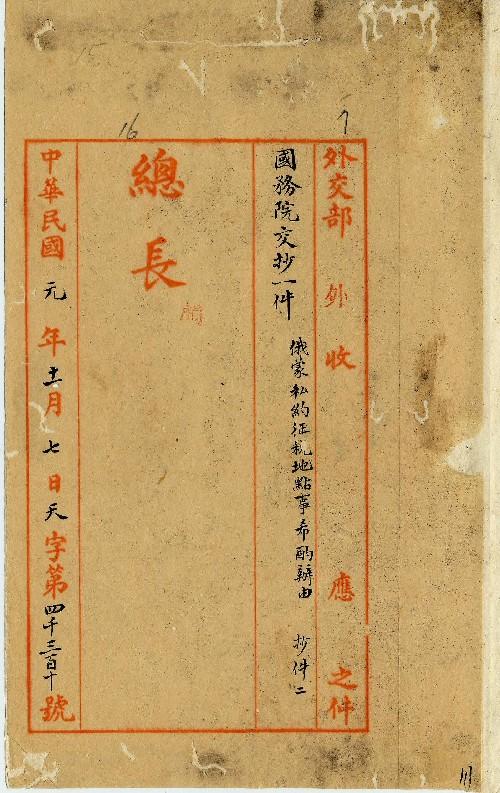 15
16
7
外交部 外 收 應 之件
國務院交抄一件 俄蒙私約征稅地點事希酌辦由 抄件二
總長
中華民國元年十二月七日天字第四千三百十號